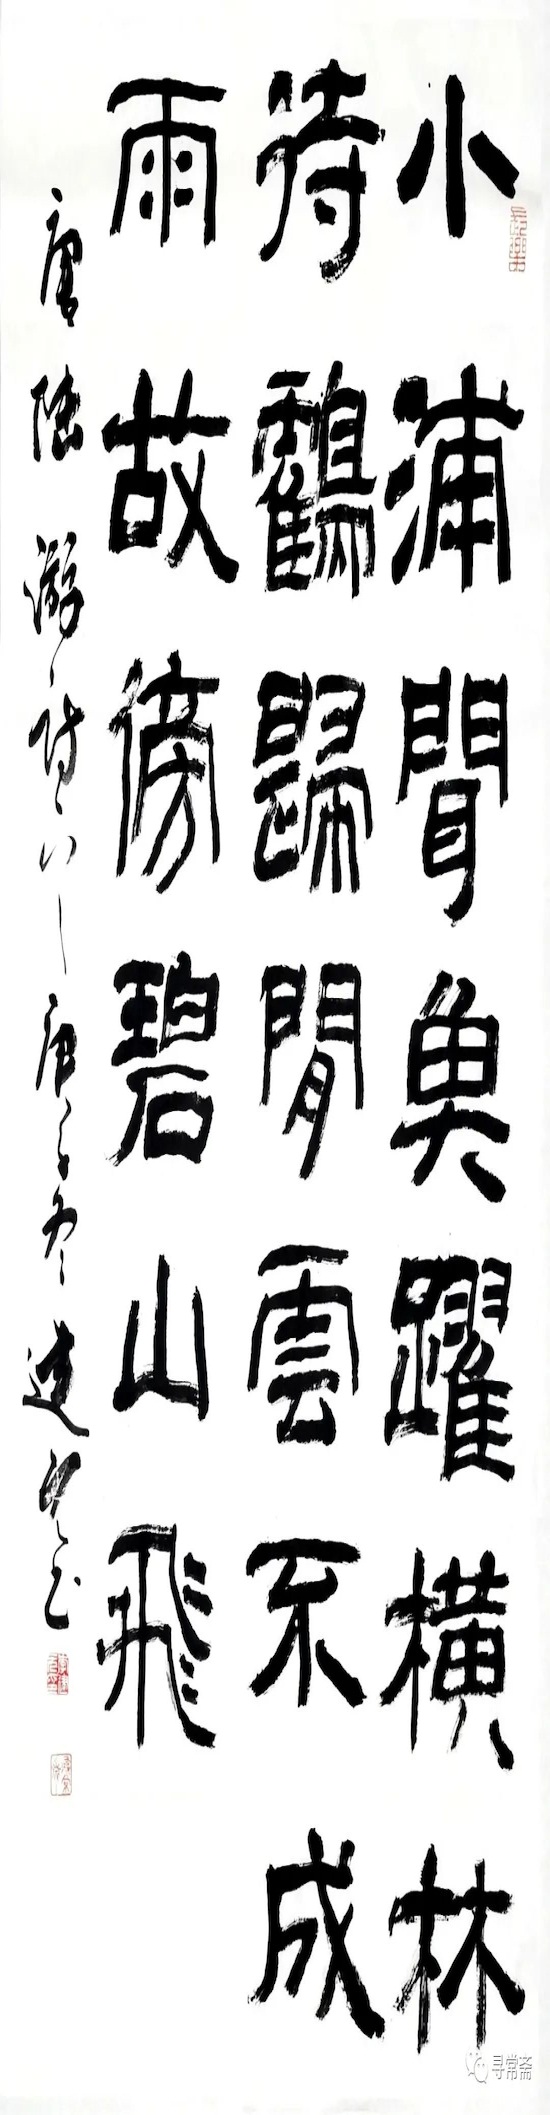 小浦聞魚躍橫林
待鶴歸閒雲不成
雨故傍碧山飛
唐陸游詩八一庚子冬建
寻常斋